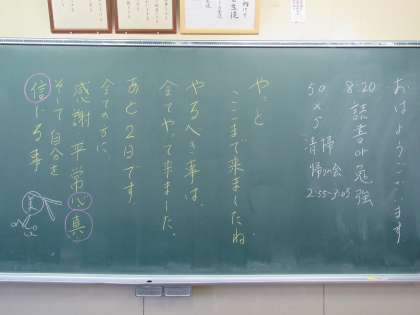 おはようございます
8:20 読書or勉強
50×5
清掃
帰りの会
2:55-3:05
やっと
ここまで来ましたね。
やるべき事は、
全てやって来ました。
あと2日です
全ての方に
感謝 平常心 真
そして自分を
信じる事